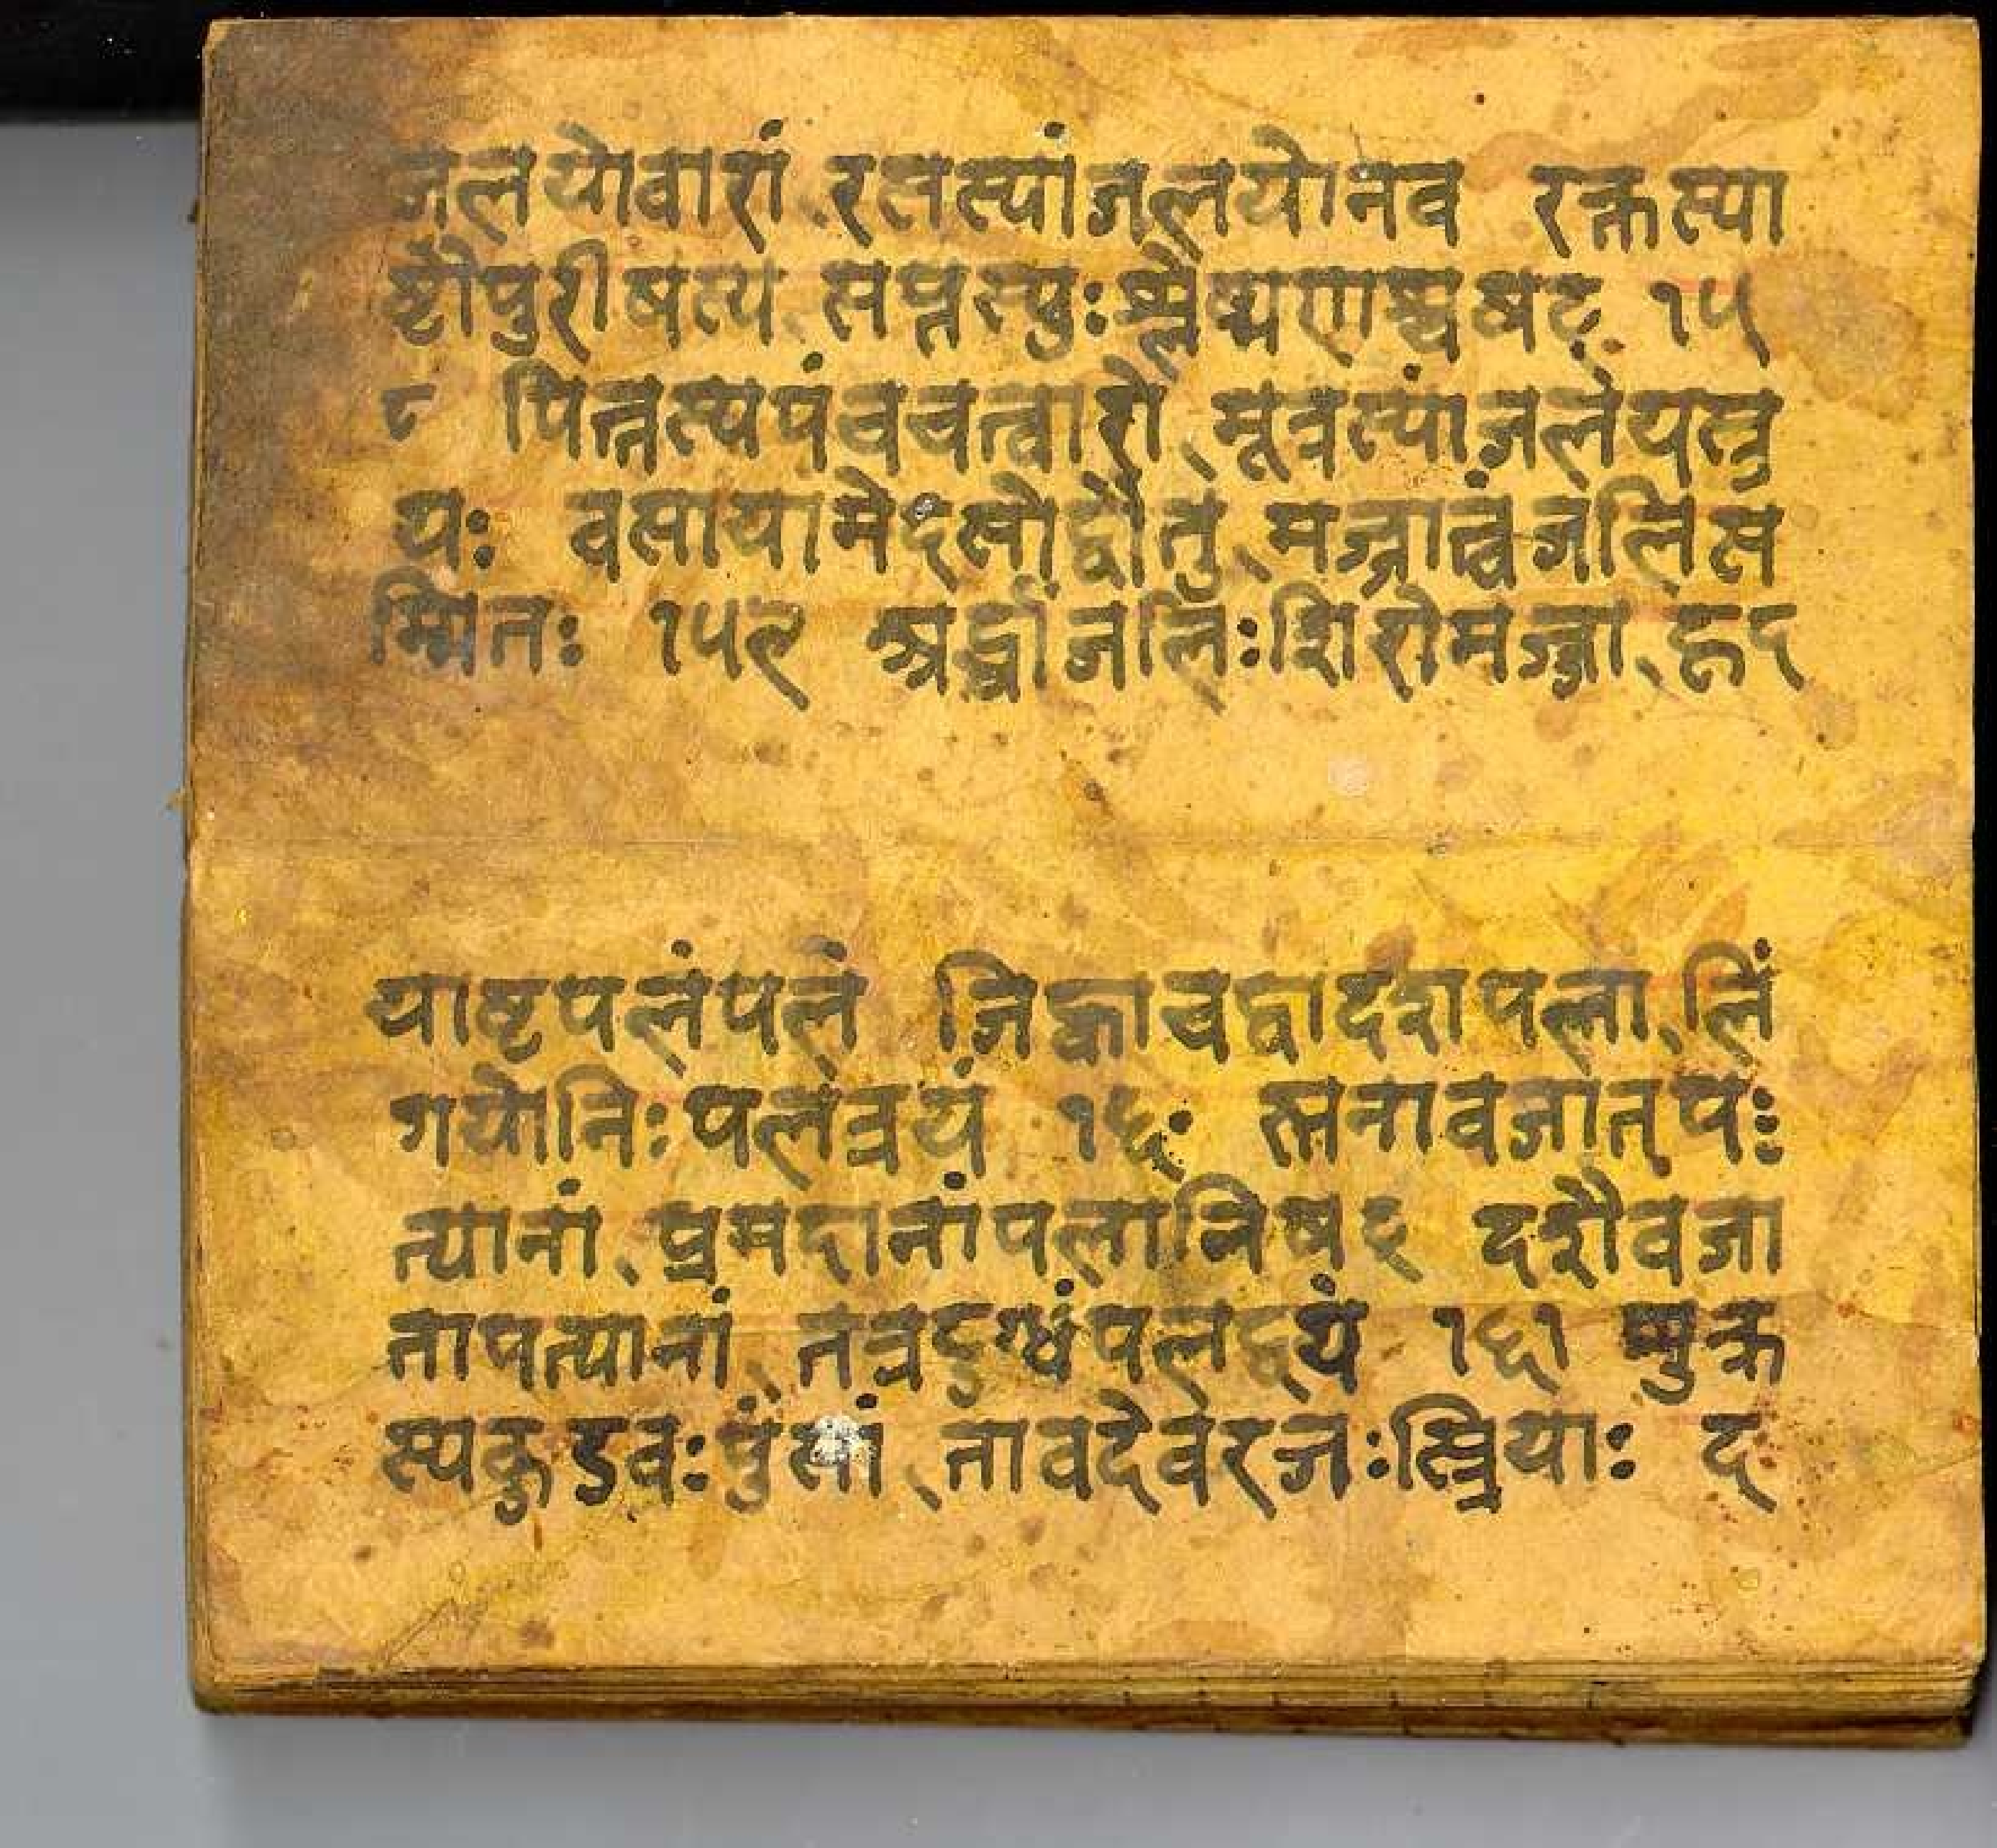 जलयोवारां रसस्यांजलयोनव रक्तस्या
ष्टौपुरीषस्य सप्तस्युःश्लेष्मणाश्चषट् १५
८ पित्तस्यपंचचत्वारो मूत्रस्यांजलयस्त्र
यः वसायामेदसोद्वौतु मज्जात्वंजलिस
म्मितः १५९ श्रर्द्धांजलिःशिरोमज्जा हृद
याष्टपलंपलं जिह्वाचद्वादशपला लिं
गयोनिःपलत्रयं १६॰ स्तनावजातप
त्यानां प्रमदानांपलानिषट् दशैवजा
तापत्यानां तत्रदुग्धंपलद्वयं १६१ श्शुक्र
स्यकुडवःपुंसां तावदेवरजःस्त्रियाः द्